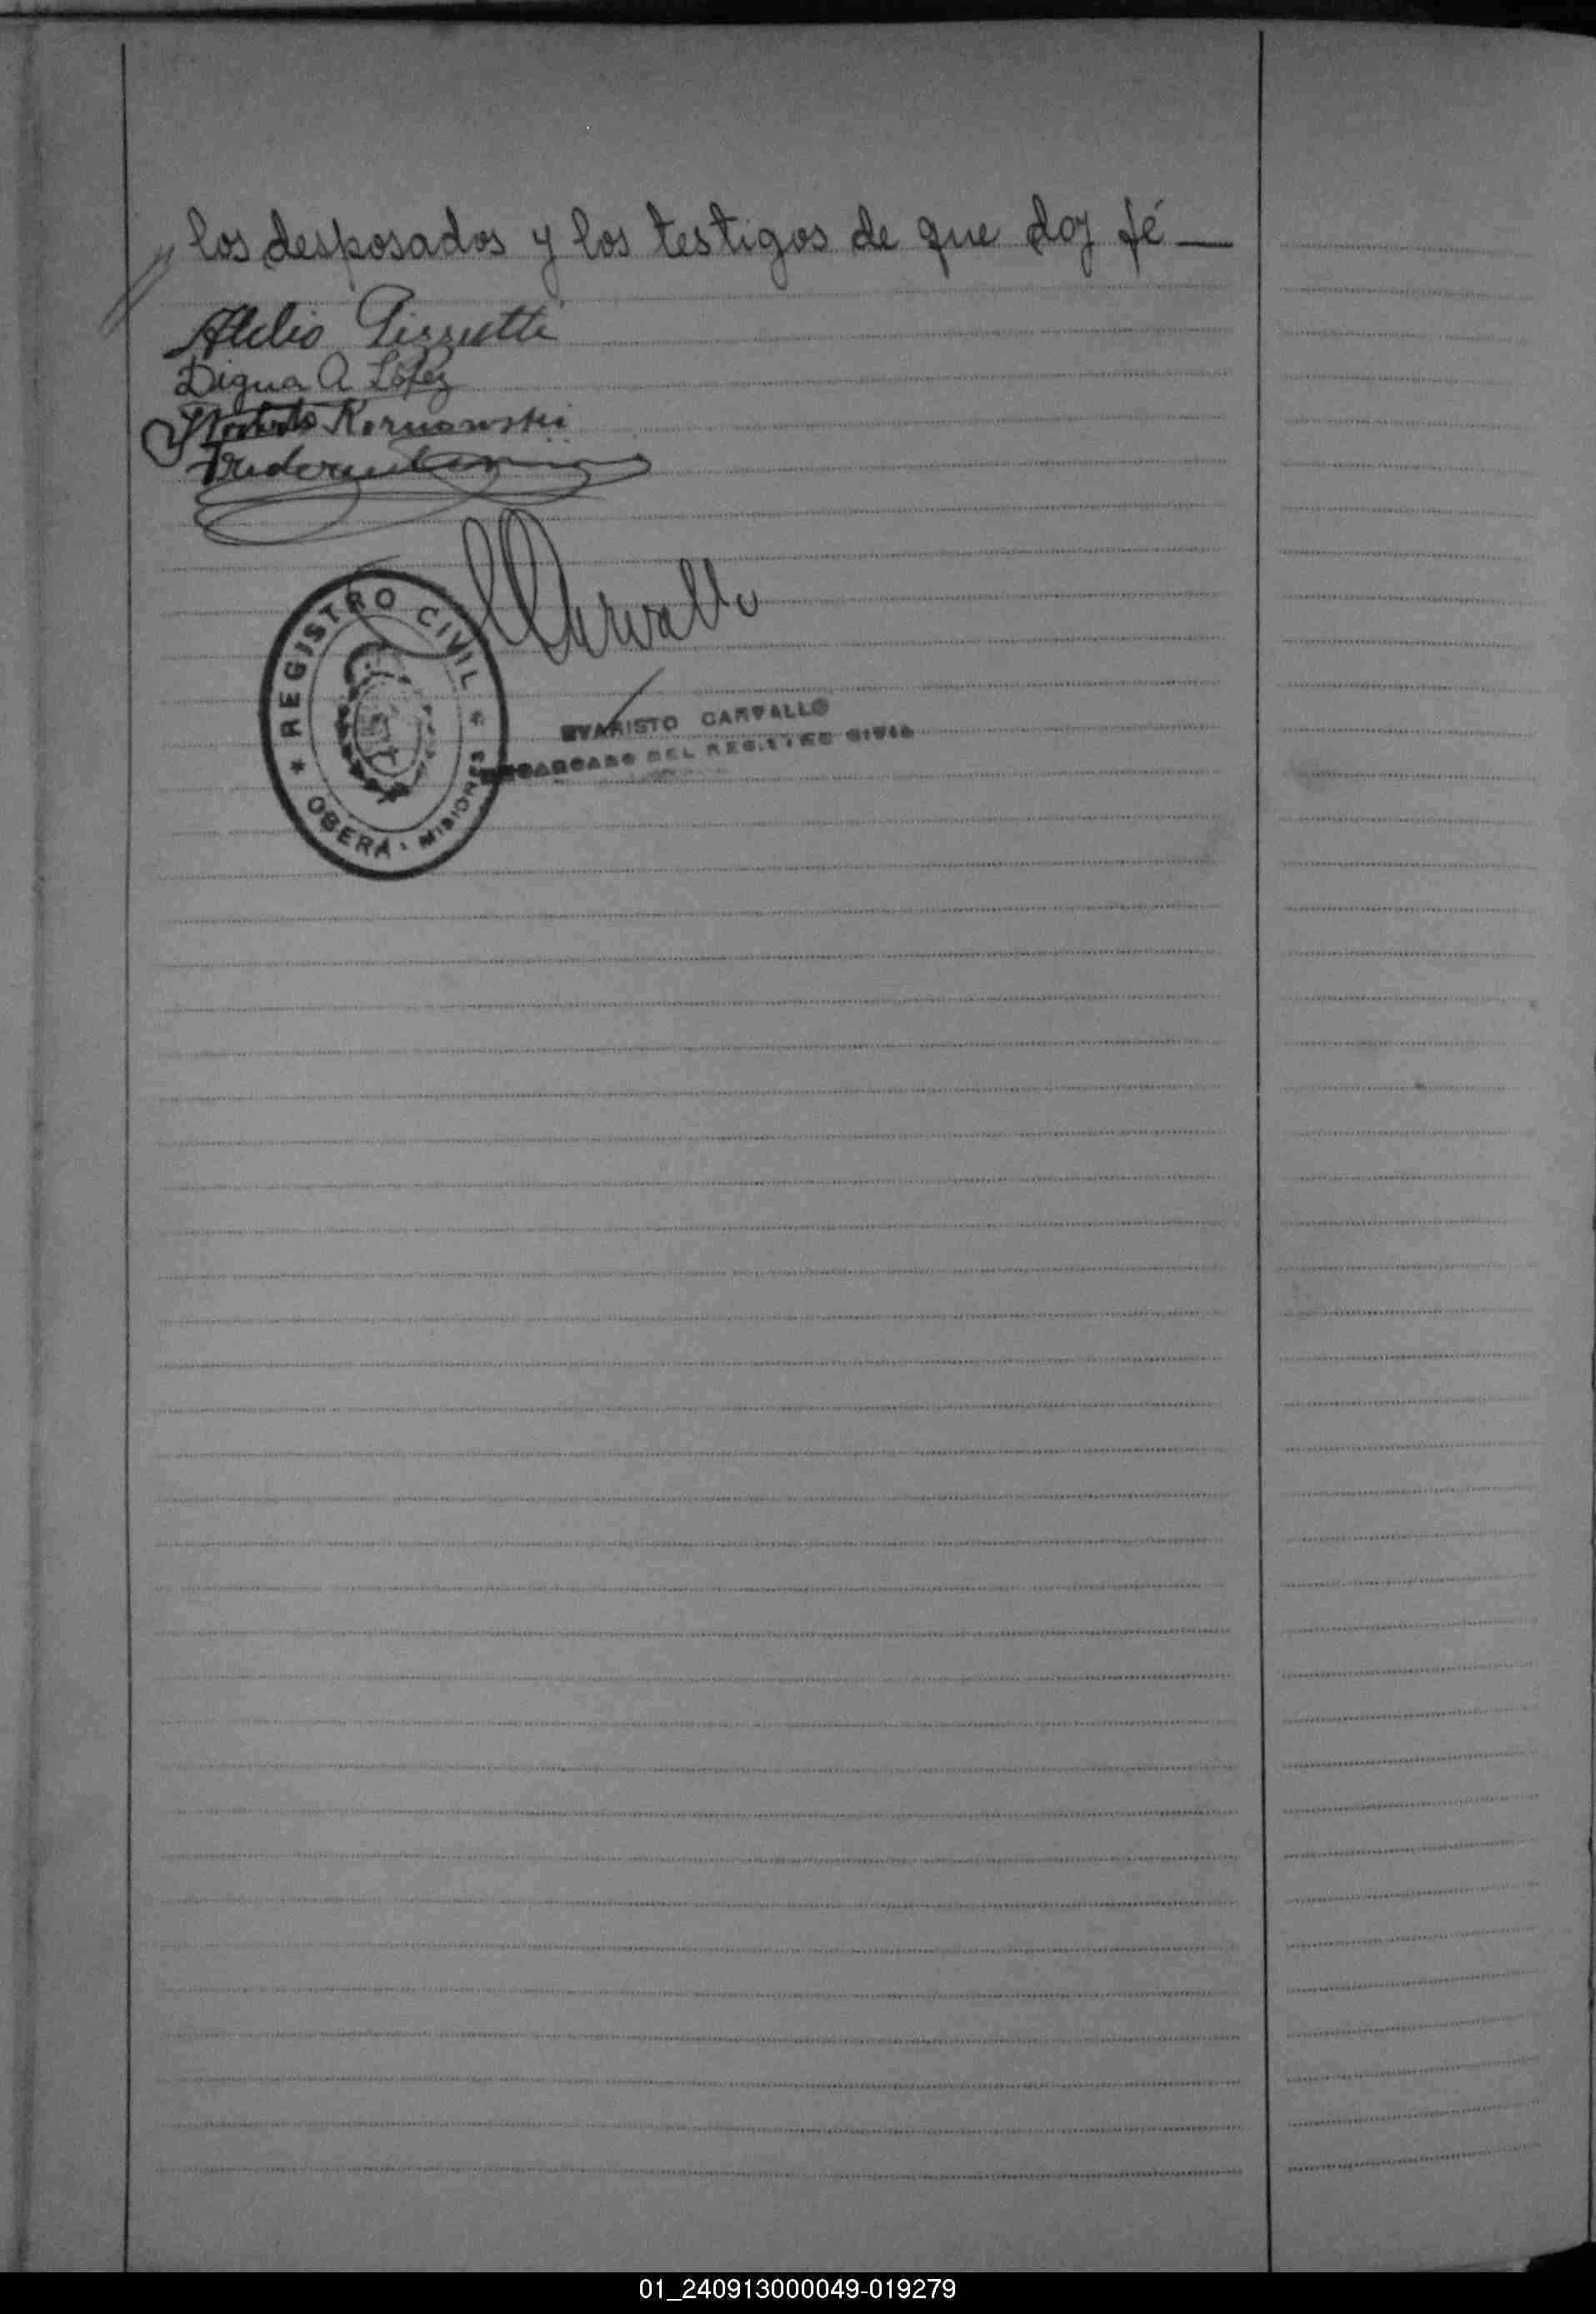 // los desposados y los testigos de que doy fé —
Atilio Pizzutti
Digna A. López
Kornowski
Carvallo
REGISTRO CIVIL
OBERÁ · MISIONES
EVARISTO CARVALLO
ENCARGADO DEL REGISTRO CIVIL
01_240913000049-019279